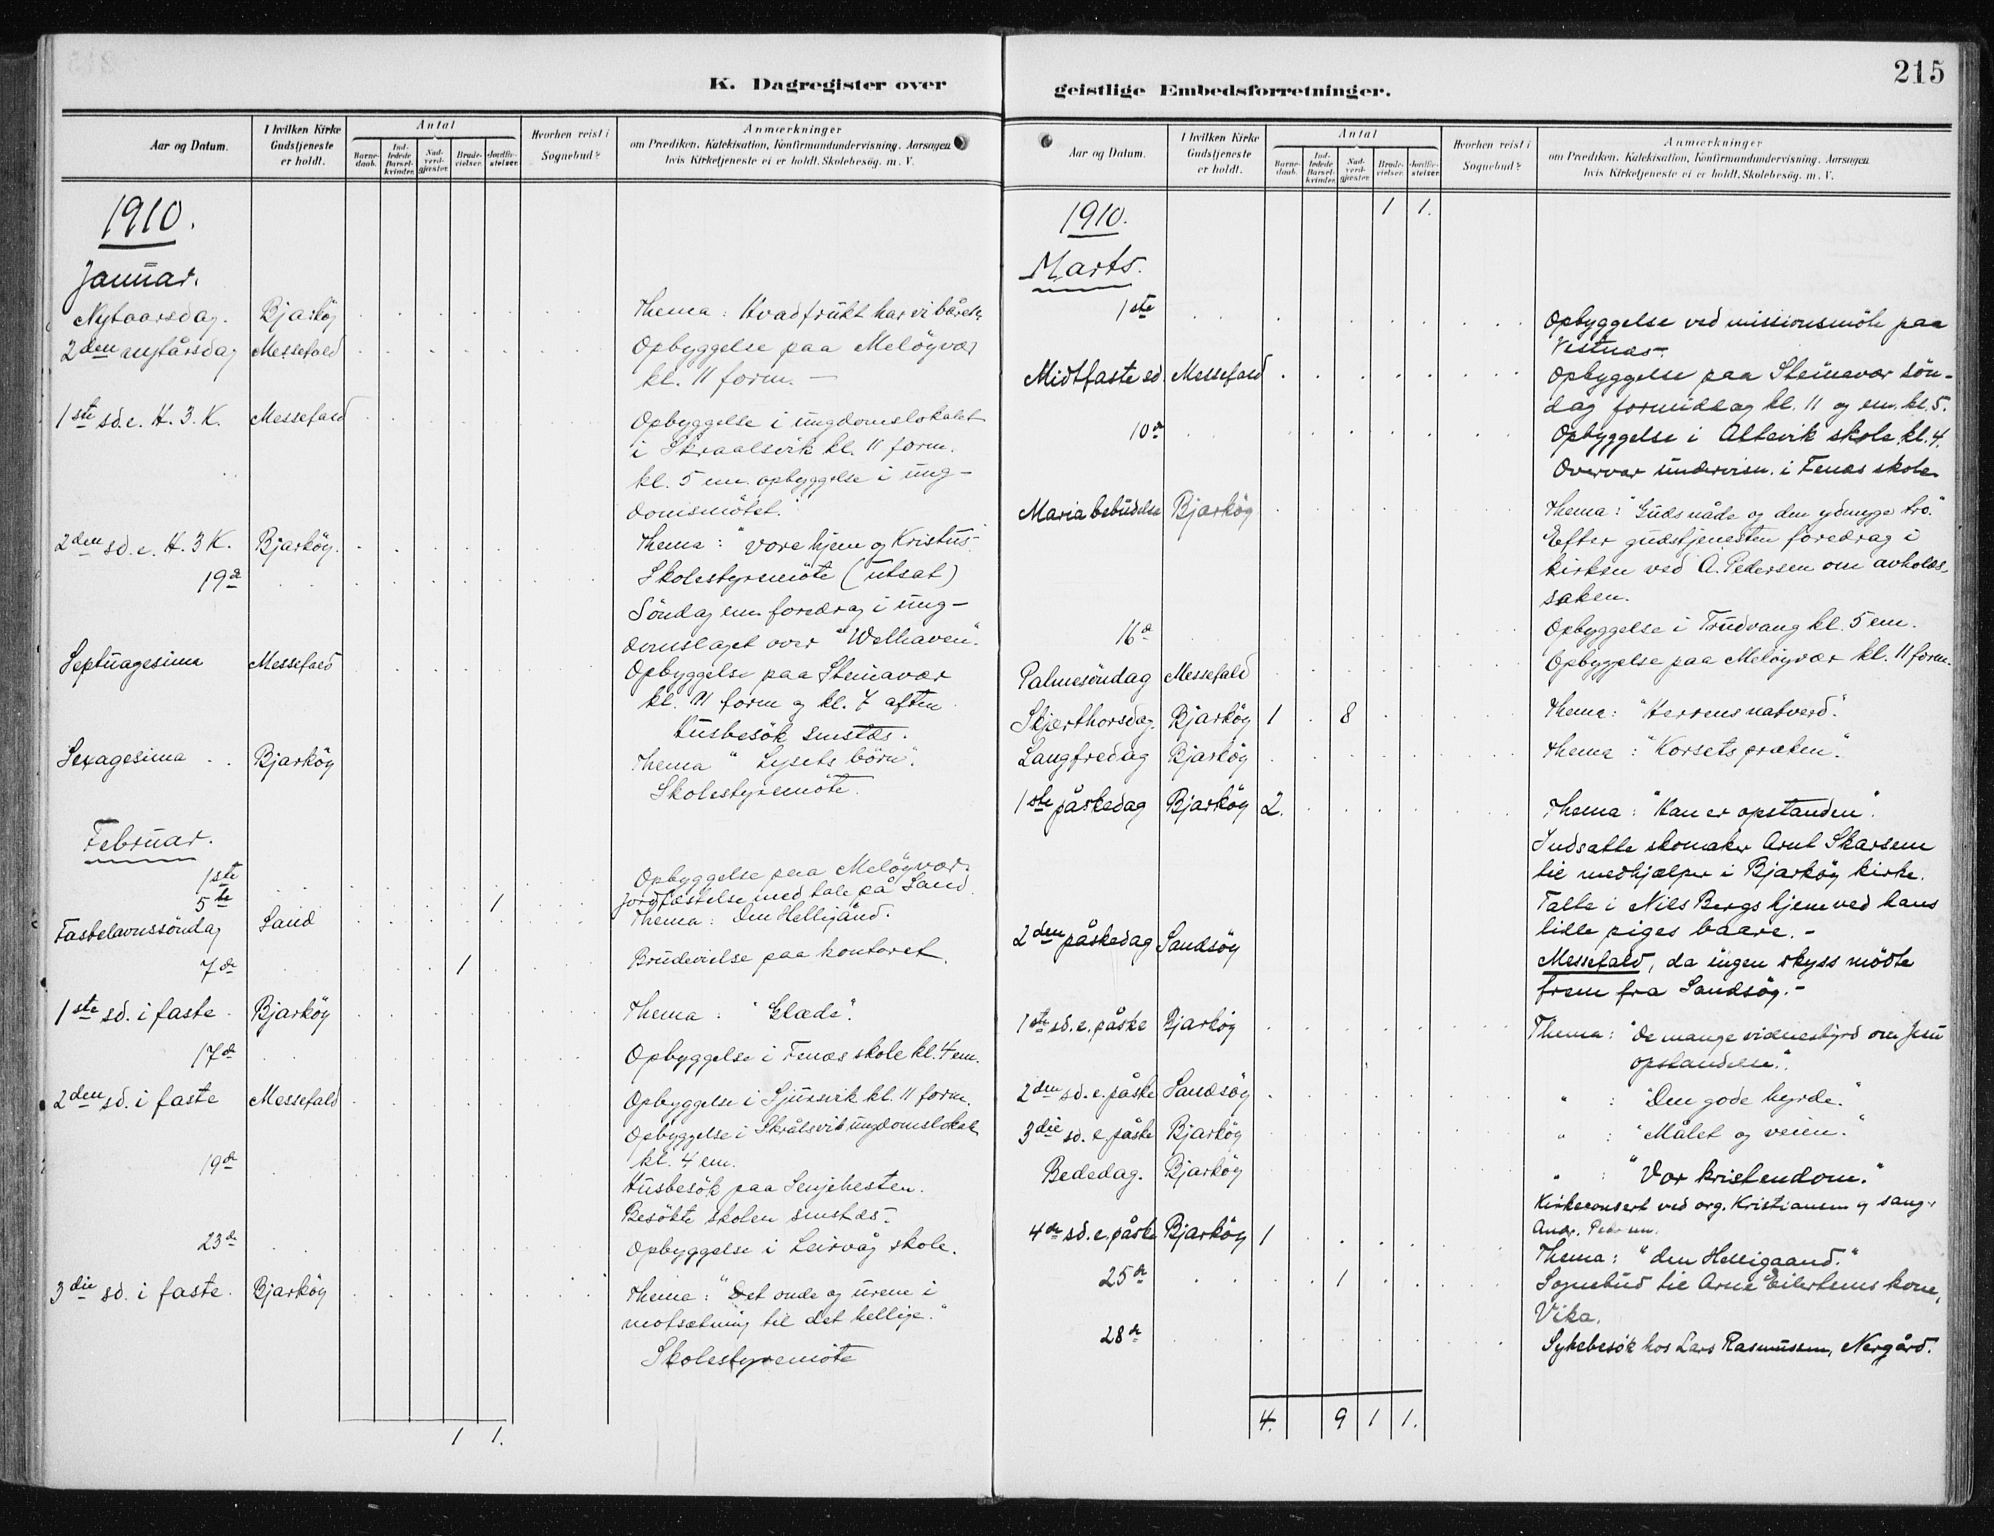 215
K. Dagregister over
geistlige Embedsforretninger.
Aar og Datum.
I hvilken Kirke Gudstjeneste er holdt.
Antal
Barnedaab.
Indledede Barselkvinder.
Nadverdgjæster.
Brudevielser.
Jordfæstelser.
Hvorhen reist i Sognebud?
Anmærkninger
om Prædiken. Katekisation, Konfirmandundervisning. Aarsagen
hvis Kirketjeneste ei er holdt. Skolebesøg. m. V.
1910.
Januar.
Nytaarsdag. Bjarköy Thema: Hvad frukt har vi båret?
2den nytårsdag Messefald Opbyggelse paa Meløyvær
kl. 11 form. —
1ste sd. e. H. 3. K. Messefald Opbyggelse i ungdomslokalet
i Skraalsvik kl. 11 form.
kl. 5 em. opbyggelse i ung-
domsmötet.
2den sd. e. H. 3 K. Bjarköy. Thema: "Vore hjem og Kristus".
19de Skolestyremöte (utsat)
Söndag em. foredrag i ung-
domslaget over "Welhaven".
Septuagesima Messefald Opbyggelse paa Steinavær
kl. 11 form og kl. 7 aften.
Husbesök smstds.
Sexagesima Bjarköy Thema "Lysets börn".
Skolestyremöte.
Februar.
1ste Opbyggelse paa Meløyvær.
5te 1 Jordfæstelse med tale på Sand.
Fastelavnssöndag Sand Thema: Den Helligånd.
7de 1 Brudevielse paa kontoret.
1ste sd. i faste Bjarköy Thema: "Glæde".
17de Opbyggelse i Fenæs skole kl. 4 em.
2den sd. i faste Messefald Opbyggelse i Sjursvik kl. 11 form.
Opbyggelse i Skrålsvik ungdomslokale
kl. 4 em.
19de Husbesök paa Senjehesten.
Besökte skolen smstds.
23de Opbyggelse i Leirvåg skole.
3die sd. i faste. Bjarköy Thema: "Det onde og urene i
motsætning til det hellige."
Skolestyremöte
1 1.
Aar og Datum.
I hvilken Kirke Gudstjeneste er holdt.
Antal
Barnedaab.
Indledede Barselkvinder.
Nadverdgjæster.
Brudevielser.
Jordfæstelser.
Hvorhen reist i Sognebud?
Anmærkninger
om Prædiken. Katekisation, Konfirmandundervisning. Aarsagen
hvis Kirketjeneste ei er holdt. Skolebesøg. m. V.
1910. 1 1.
Marts.
1ste Opbyggelse ved missionsmöte paa
Vestnæs.
Midtfaste sd. Messefald Opbyggelse paa Steinavær sön-
dag formiddag kl. 11 og em. kl. 5.
10de Opbyggelse i Altevik skole kl. 4.
Overvar undervisn. i Fenæs skole
Maria bebudelse Bjarköy Thema: "Guds nåde og den ydmyge tro".
Efter gudstjenesten foredrag i
kirken ved A. Pedersen om avholds-
saken.
16de Opbyggelse i Trudvang kl. 5 em.
Palmesöndag Messefald Opbyggelse paa Meløyvær kl. 11 form.
Skjærthorsdag. Bjarköy 1 8 Thema: "Herrens natverd."
Langfredag Bjarköy Thema: "Korsets præken".
1ste påskedag Bjarköy 2. Thema: "Han er opstanden".
Indsatte skomaker Arnt Skarsem
til medhjælper i Bjarköy kirke.
Talte i Nils Bergs hjem ved hans
lille piges baare. —
2den påskedag Sandsöy Messefald, da ingen skyss mödte
frem fra Sandsöy. —
1ste sd. e. påske Bjarköy Thema: "De mange vidnesbyrd om Jesu
opstandelse".
2den sd. e. påske Sandsöy " : "Den gode hyrde."
3die sd. e. påske Bjarköy " : "Målet og veien."
Bededag. Bjarköy " : "Vor kristendom."
Kirkeconsert ved org. Kristiansen og sang.
Andr. Pedersen.
4de sd. e. påske Bjarköy 1 Thema: "den Helligaand."
25de 1 Sognebud til Arne Eilertsens kone,
Vika.
28de Sykebesök hos Lars Rasmussen, Nergård.
4. 9 1 1.